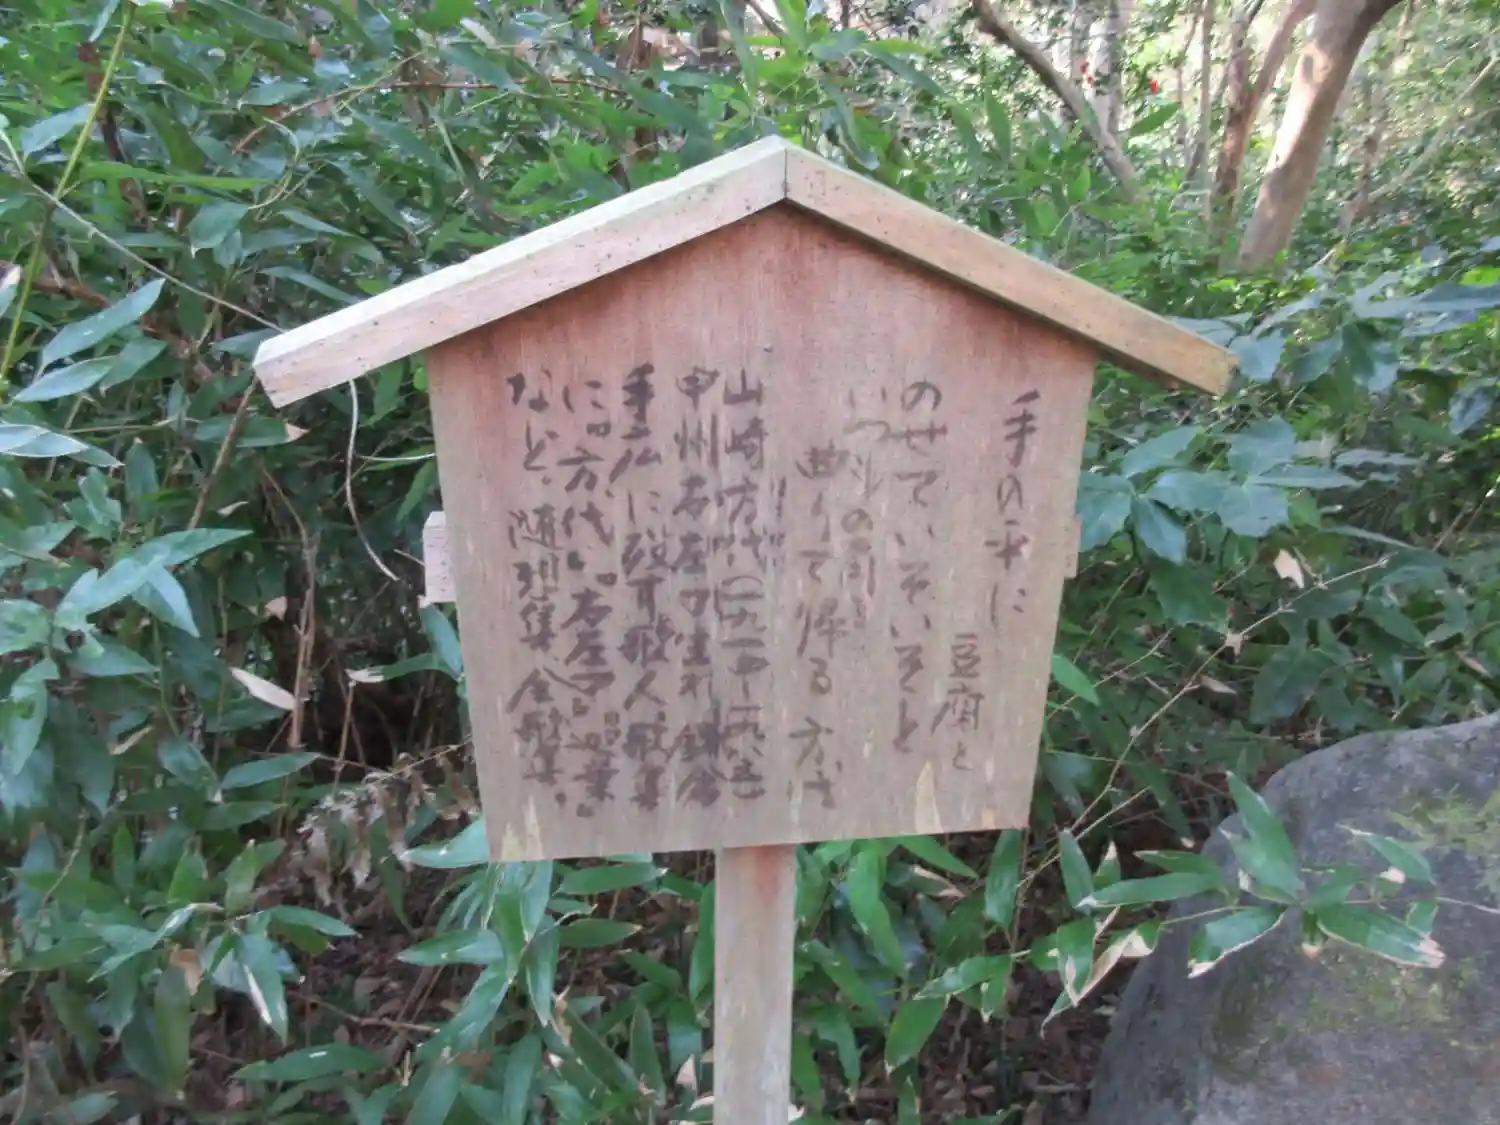 手の平に
豆腐を
のせていそいそと
いつもの角を
曲りて帰る 方代
山崎方代(一九一四ー一九八五)
甲州右左口生れ鎌倉
手広に歿す歌人、歌集
に「方代」「右左口」「迦葉」
など、随想集、全歌集。